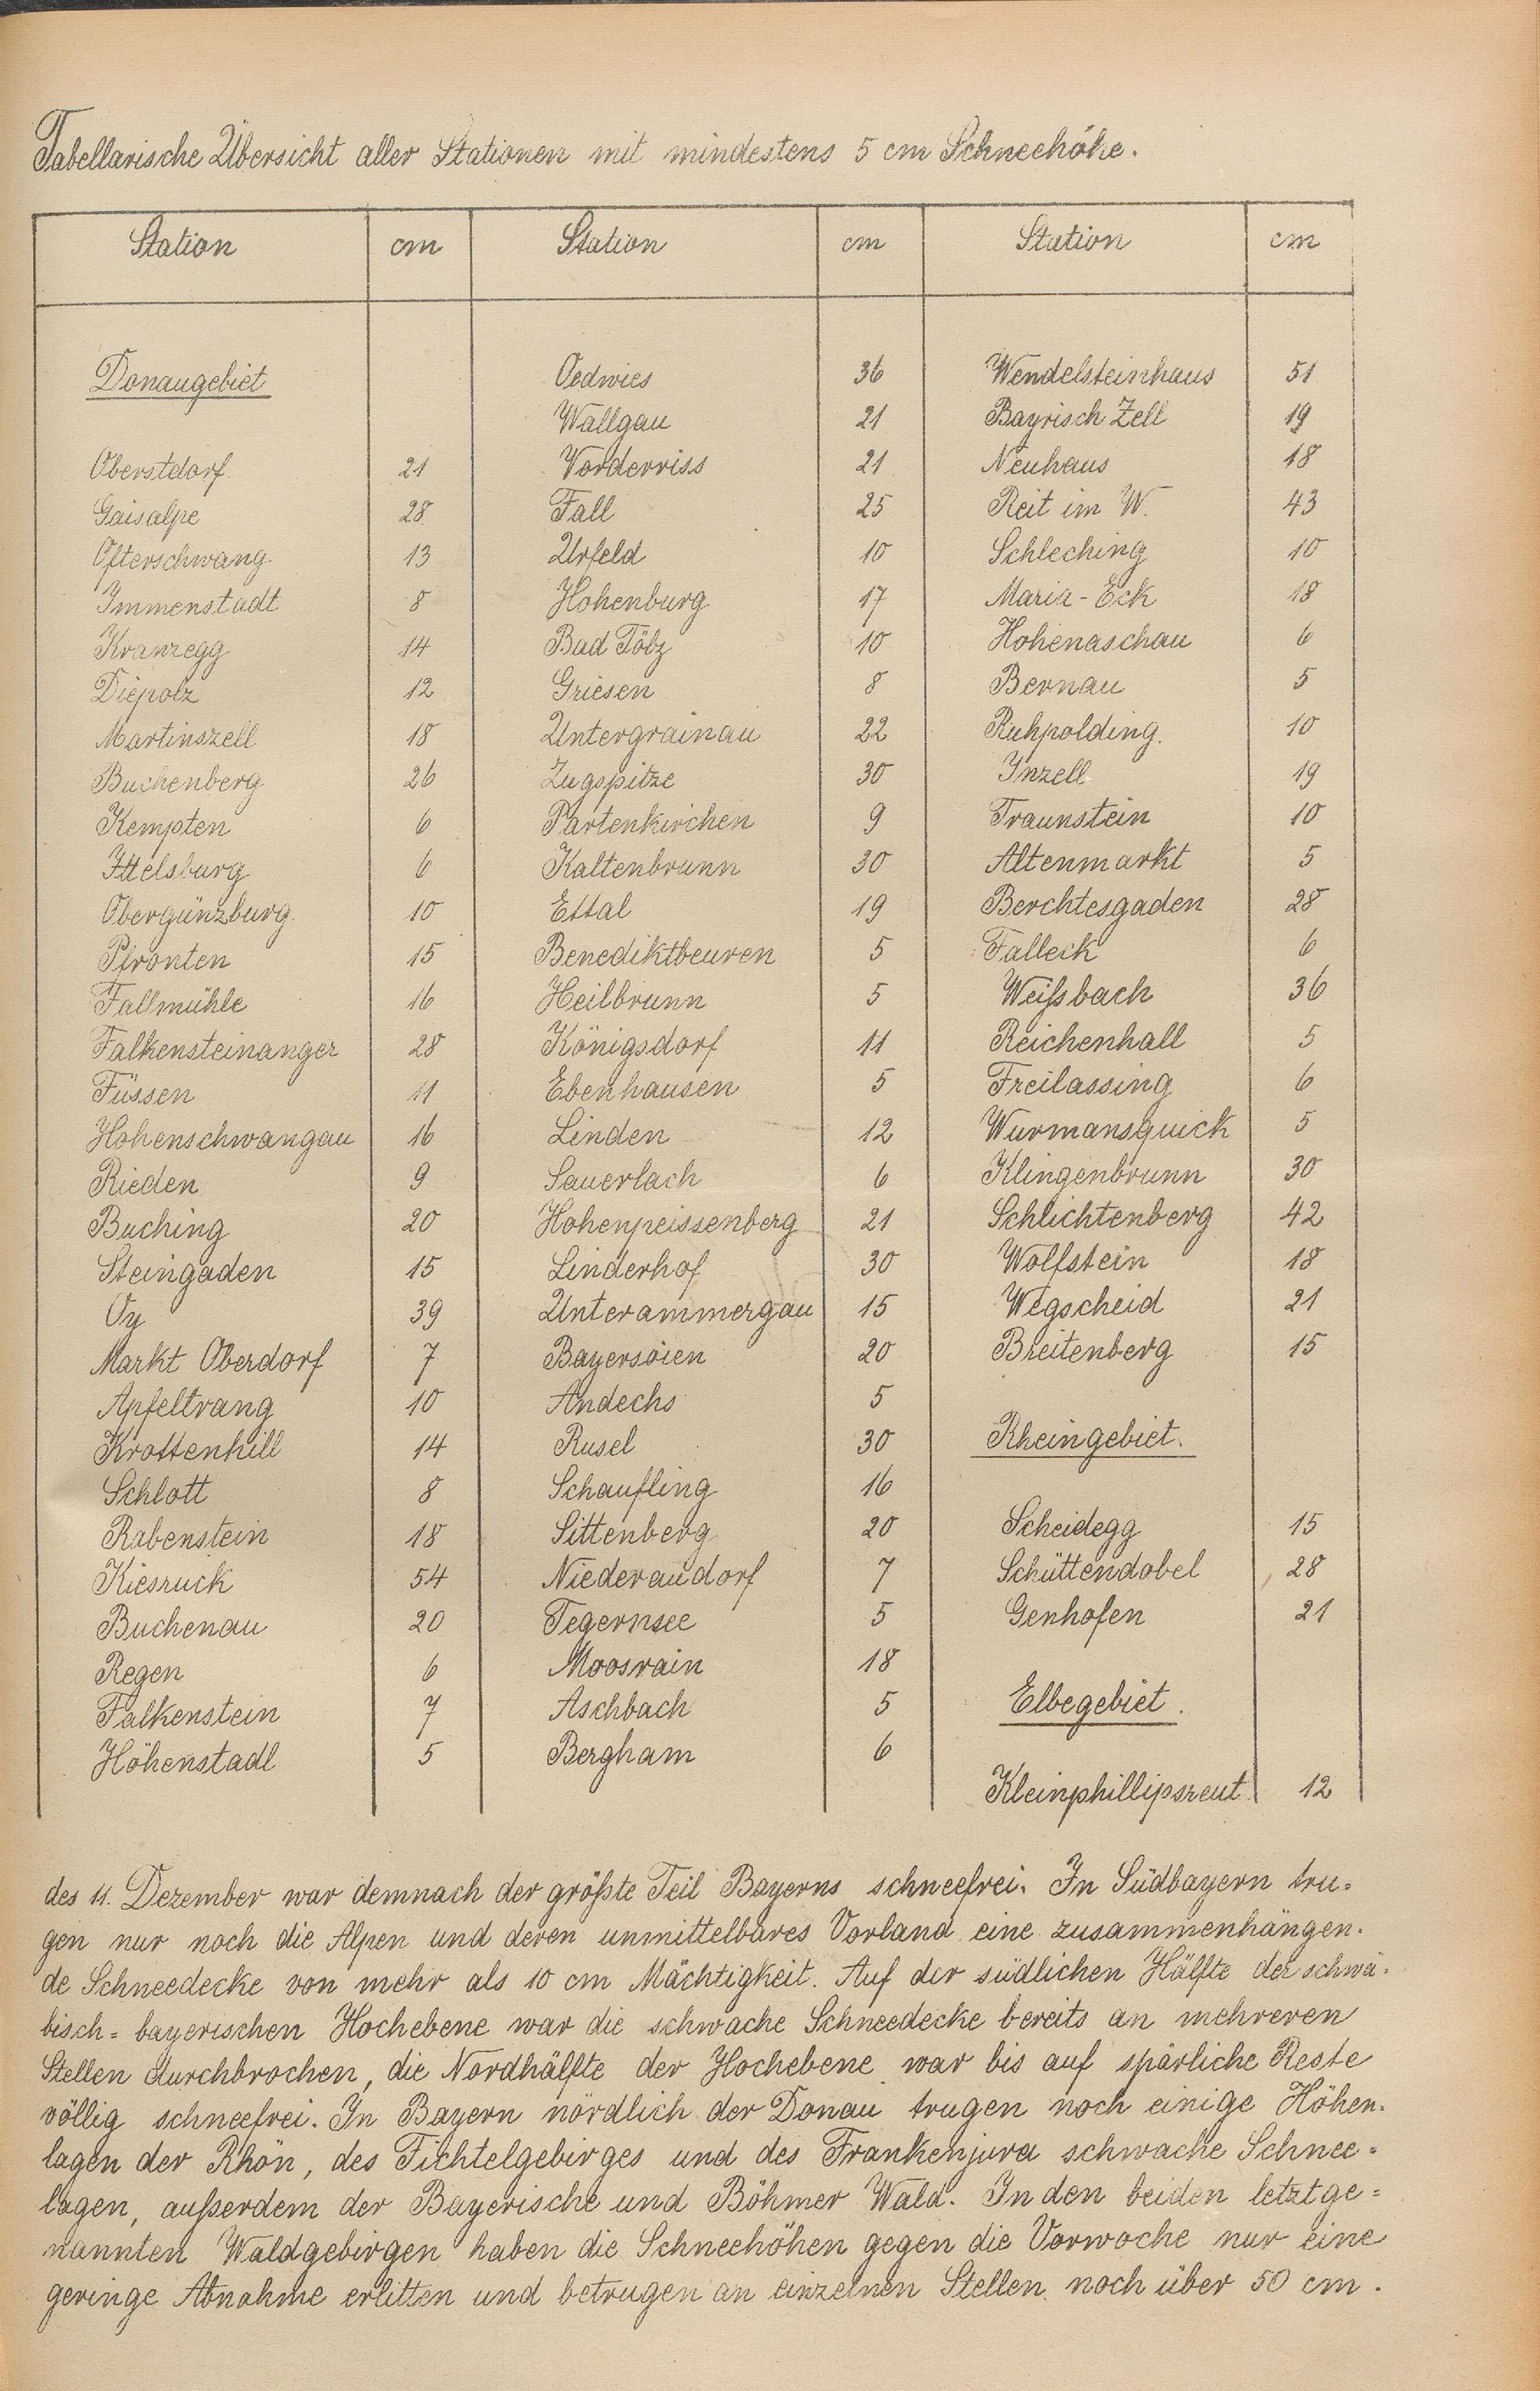 Tabellarische Übersicht aller Stationen mit mindestens 5 cm Schneehöhe.
Station cm Station cm Station cm
Donaugebiet Oedwies 36 Wendelsteinhaus 51
Wallgau 21 Bayrisch Zell 19
Oberstdorf 21 Vorderriss 21 Neuhaus 18
Gaisalpe 28 Fall 25 Reit im W. 43
Ofterschwang 13 Urfeld 10 Schleching 10
Immenstadt 8 Hohenburg 17 Maria-Eck 18
Kranzegg 14 Bad Tölz 10 Hohenaschau 6
Diepolz 12 Griesen 8 Bernau 5
Martinszell 18 Untergrainau 22 Ruhpolding. 10
Buchenberg 26 Zugspitze 30 Inzell 19
Kempten 6 Partenkirchen 9 Traunstein 10
Ittelsburg 6 Kaltenbrunn 30 Altenmarkt 5
Obergünzburg 10 Ettal 19 Berchtesgaden 28
Pfronten 15 Benediktbeuren 5 Falleck 6
Fallmühle 16 Heilbrunn 5 Weißbach 36
Falkensteinanger 28 Königsdorf 11 Reichenhall 5
Füssen 11 Ebenhausen 5 Freilassing 6
Hohenschwangau 16 Linden 12 Wurmansquick 5
Rieden 9 Sauerlach 6 Klingenbrunn 30
Buching 20 Hohenpeissenberg 21 Schlichtenberg 42
Steingaden 15 Linderhof 30 Wolfstein 18
Oy 39 Unterammergau 15 Wegscheid 21
Markt Oberdorf 7 Bayersoien 20 Breitenberg 15
Apfeltrang 10 Andechs 5
Krottenhill 14 Rusel 30 Rheingebiet.
Schlott 8 Schaufling 16
Rabenstein 18 Sittenberg 20 Scheidegg 15
Kiesruck 54 Niederaudorf 7 Schüttendobel 28
Buchenau 20 Tegernsee 5 Genhofen 21
Regen 6 Moosrain 18
Falkenstein 7 Aschbach 5 Elbegebiet.
Höhenstadl 5 Bergham 6
Kleinphillipsreut 12
des 11. Dezember war demnach der größte Teil Bayerns schneefrei. In Südbayern tru-
gen nur noch die Alpen und deren unmittelbares Vorland eine zusammenhängen-
de Schneedecke von mehr als 10 cm Mächtigkeit. Auf der südlichen Hälfte der schwä-
bisch-bayerischen Hochebene war die schwache Schneedecke bereits an mehreren
Stellen durchbrochen, die Nordhälfte der Hochebene war bis auf spärliche Reste
völlig schneefrei. In Bayern nördlich der Donau trugen noch einige Höhen-
lagen der Rhön, des Fichtelgebirges und des Frankenjura schwache Schnee-
lagen, außerdem der Bayerische und Böhmer Wald. In den beiden letztge-
nannten Waldgebirgen haben die Schneehöhen gegen die Vorwoche nur eine
geringe Abnahme erlitten und betrugen an einzelnen Stellen noch über 50 cm.